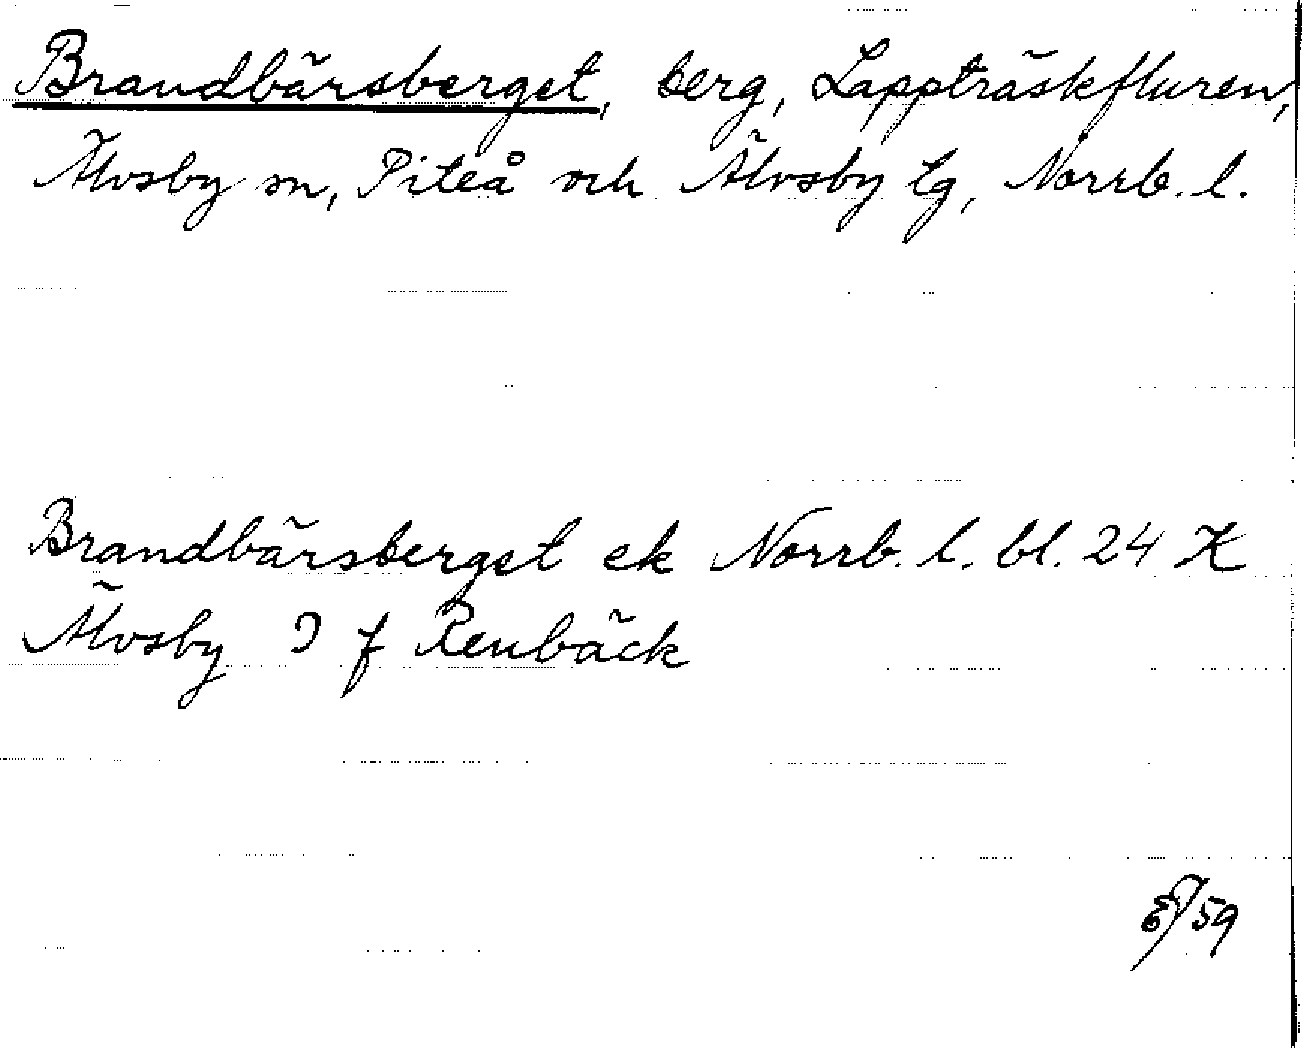 Brandbärsberget, berg, Lappträskfluren,
Älvsby sn, Piteå och Älvsby tg, Norrb. l.
Brandbärsberget ek Norrb. l. bl. 24 K
Älvsby J f Renbäck
59